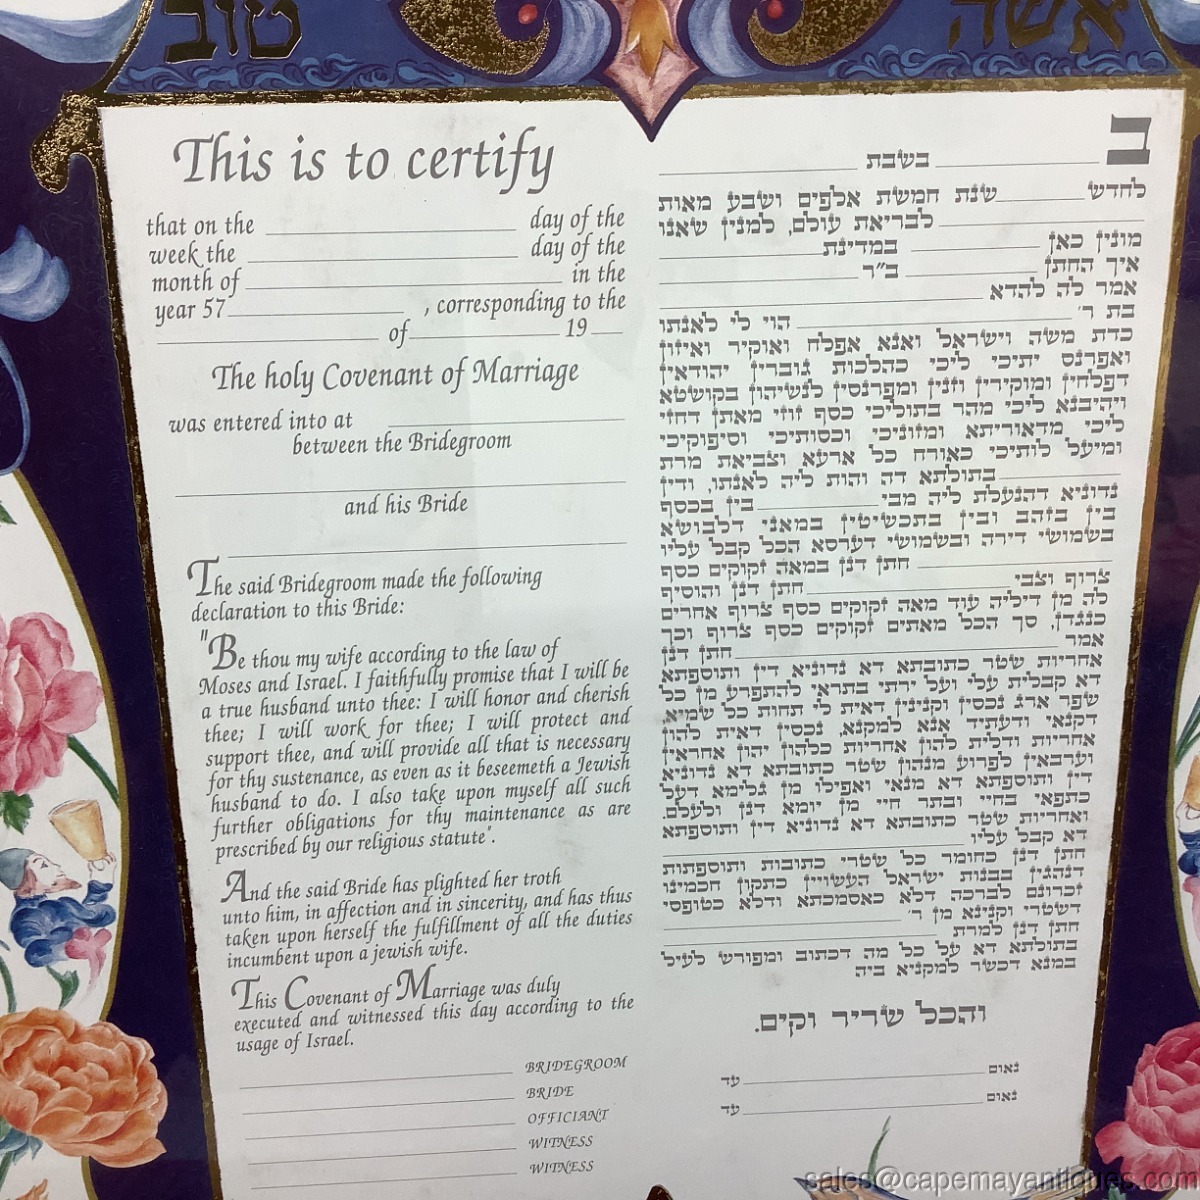 טוב
אשה
This is to certify
that on the ____ day of the
week the ____ day of the
month of ____ in the
year 57____ , corresponding to the
____ of ____ 19__
The holy Covenant of Marriage
was entered into at ____
between the Bridegroom
and his Bride
The said Bridegroom made the following
declaration to this Bride:
"Be thou my wife according to the law of
Moses and Israel. I faithfully promise that I will be
a true husband unto thee: I will honor and cherish
thee; I will work for thee; I will protect and
support thee, and will provide all that is necessary
for thy sustenance, as even as it beseemeth a Jewish
husband to do. I also take upon myself all such
further obligations for thy maintenance as are
prescribed by our religious statute".
And the said Bride has plighted her troth
unto him, in affection and in sincerity, and has thus
taken upon herself the fulfillment of all the duties
incumbent upon a jewish wife.
This Covenant of Marriage was duly
executed and witnessed this day according to the
usage of Israel.
BRIDEGROOM
BRIDE
OFFICIANT
WITNESS
WITNESS
ב ____ בשבת ____
לחדש ____ שנת חמשת אלפים ושבע מאות
____ לבריאת עולם, למנין שאנו
מונין כאן ____ במדינת ____
איך החתן ____ ב"ר ____
אמר לה להדא ____
בת ר' ____ הוי לי לאנתו
כדת משה וישראל ואנא אפלח ואוקיר ואיזון
ואפרנס יתיכי ליכי כהלכות גוברין יהודאין
דפלחין ומוקירין וזנין ומפרנסין לנשיהון בקושטא
ויהיבנא ליכי מהר בתוליכי כסף זוזי מאתן דחזי
ליכי מדאוריתא ומזוניכי וכסותיכי וסיפוקיכי
ומיעל לותיכי כאורח כל ארעא וצביאת מרת
____ בתולתא דה והות ליה לאנתו, ודין
נדוניא דהנעלת ליה מבי ____ בין בכסף
בין בזהב ובין בתכשיטין במאני דלבושא
בשמושי דירה ובשמושי דערסא הכל קבל עליו
____ חתן דנן במאה זקוקים כסף
צרוף וצבי ____ חתן דנן והוסיף
לה מן דיליה עוד מאה זקוקים כסף צרוף אחרים
כנגדן, סך הכל מאתים זקוקים כסף צרוף וכך
אמר ____ חתן דנן
אחריות שטר כתובתא דא נדוניא דין ותוספתא
דא קבלית עלי ועל ירתי בתראי להתפרע מן כל
שפר ארג נכסין וקנינין דאית לי תחות כל שמיא,
דקנאי ודעתיד אנא למקנא, נכסין דאית להון
אחריות ודלית להון אחריות כלהון יהון אחראין
וערבאין לפרוע מנהון שטר כתובתא דא נדוניא
דין ותוספתא דא מנאי ואפילו מן גלימא דעל
כתפאי בחיי ובתר חיי מן יומא דנן ולעלם.
ואחריות שטר כתובתא דא נדוניא דין ותוספתא
דא קבל עליו ____
חתן דנן כחומר כל שטרי כתובות ותוספתות
דנהגין בבנות ישראל העשויין כתקון חכמינו
זכרונם לברכה דלא כאסמכתא ודלא כטופסי
דשטרי וקנינא מן ר' ____
חתן דנן למרת ____
בתולתא דא על כל מה דכתוב ומפורש לעיל
במנא דכשר למקניא ביה
והכל שריר וקים.
נאום ____ עד
נאום ____ עד
sales@capemayantiques.com